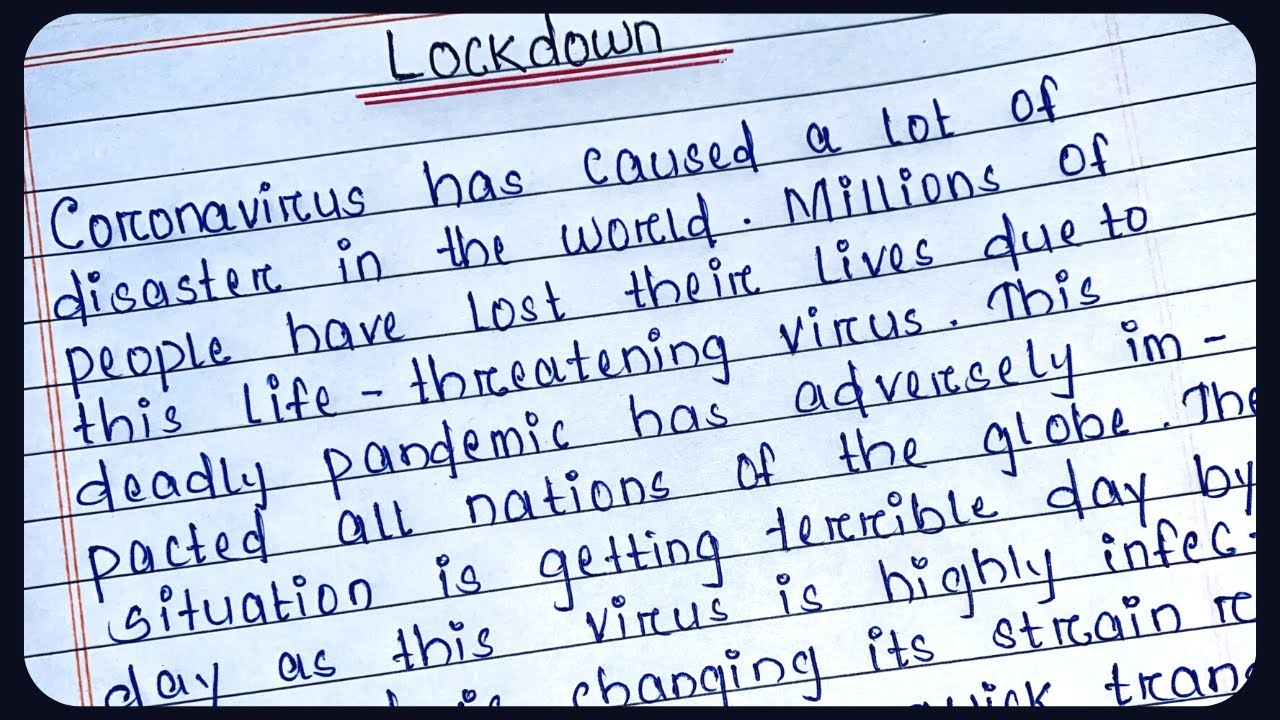 Lockdown
Coronavirus has caused a lot of
disaster in the world. Millions of
people have lost their lives due to
this life-threatening virus. This
deadly pandemic has adversely im-
pacted all nations of the globe. The
situation is getting terrible day by
day as this virus is highly infec-
changing its strain re
trans